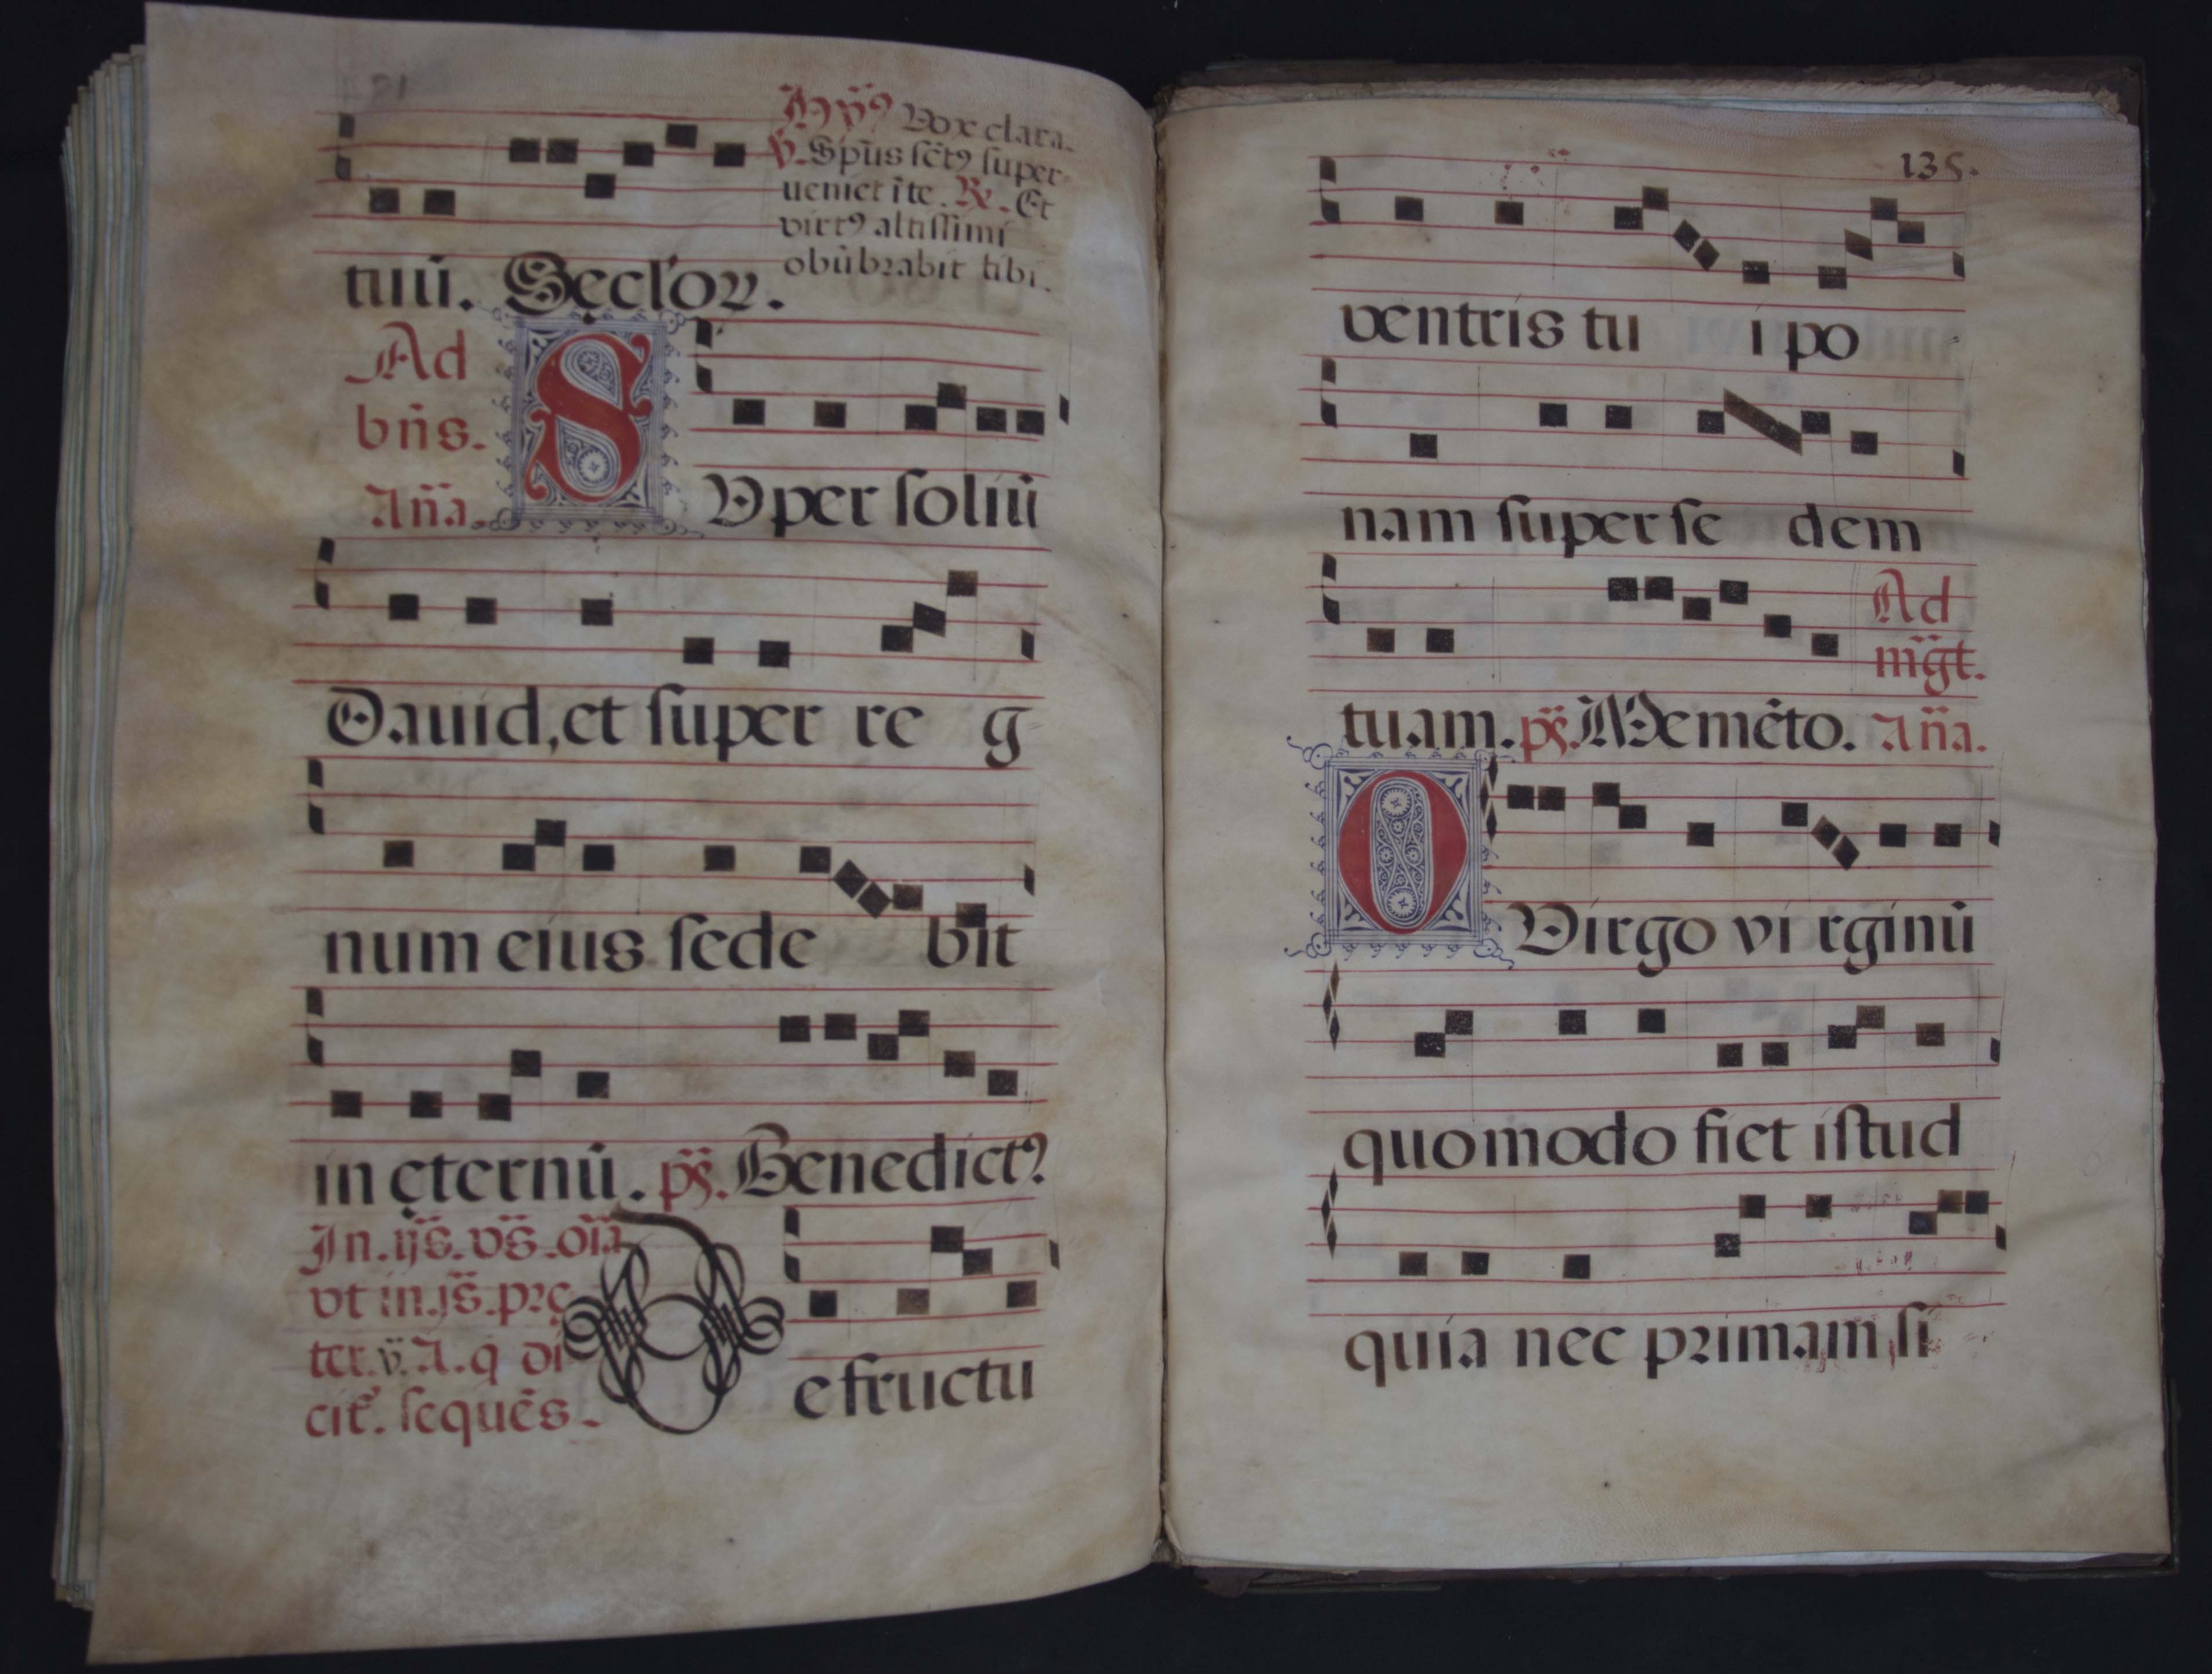 Hỹ9 Vox clara.
℣. Spũs sct9 super
ueniet ĩte. ℟. Et
virt9 altissimi
obũbrabit tibi.
tuũ. Sęcloꝝ.
Ad
bñs.
Aña.
SVper soliũ
Dauid, et super re g
num eius sede bit
in ęternũ. ps̃. Benedict9
In.ijs̃.vs̃.oĩa
vt in.js̃.prę
ter. ℣. A. q di
cit᷑. sequẽs.
De fructu
135.
ventris tu i po
nam super se dem
Ad
m̃gt.
tuam. ps̃. Memẽto. Aña.
O Virgo vi rginũ
quomodo fiet istud
quia nec primam si